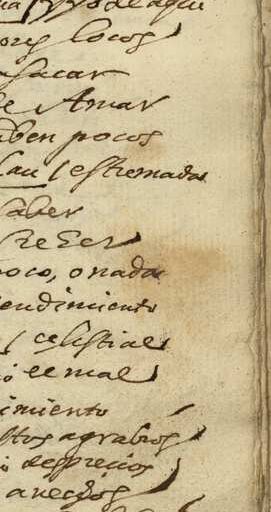 yo de aqui
ores locos
sacar
de Amar
aben pocos
lau / estremadas
saber
creser
poco, o nada
endimiento
/ celistial
el mal
imiento
stos agrabios
despreçios
a neçios